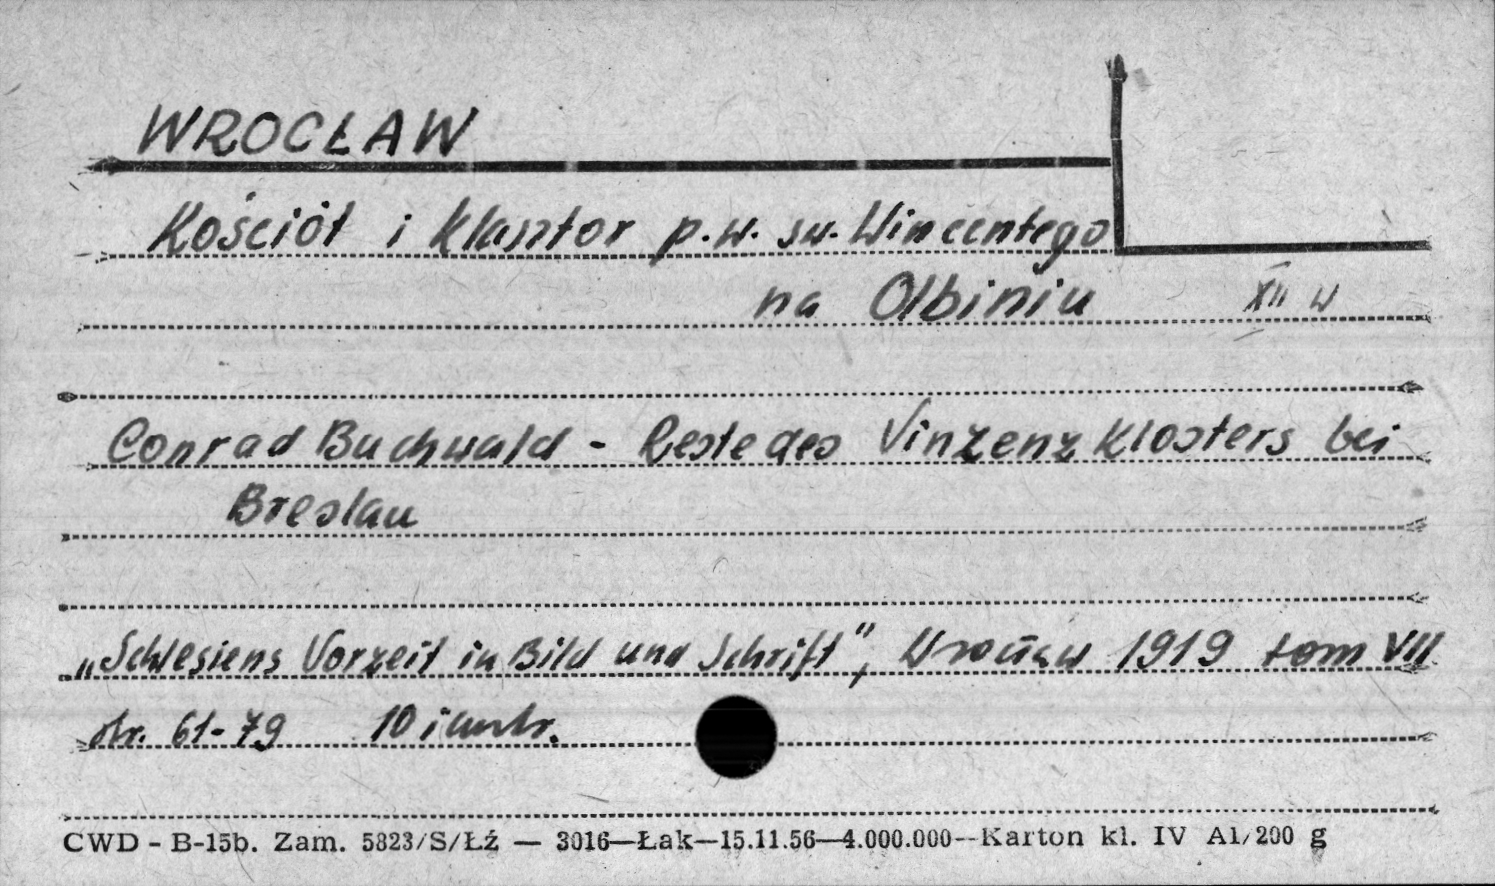 WROCŁAW
Kościół i klasztor p.w. św. Wincentego
na Olbiniu XII w
Conrad Buchwald - Reste des Vinzenzklosters bei
Breslau
„Schlesiens Vorzeit in Bild und Schrift”, Wrocław 1919 tom VII
str. 61-79 10 ilustr.
CWD - B-15b. Zam. 5823/S/Łź — 3016—Łak—15.11.56—4.000.000--Karton kl. IV A1/200 g